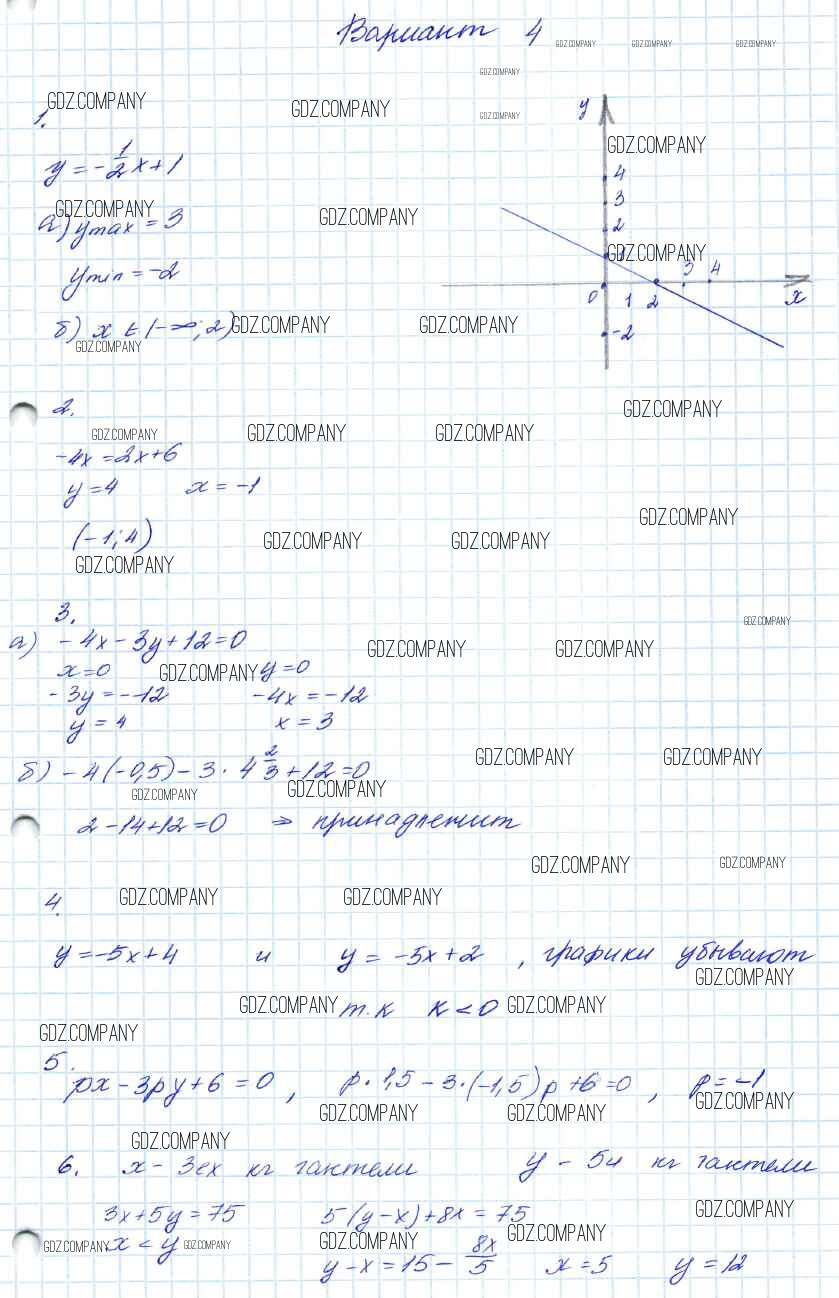 Вариант 4
1.
y = -1/2x+1
а) ymax = 3
ymin = -2
б) x ∈ (-∞; 2)
y
4
3
2
1
0 1 2 3 4 x
-2
2.
-4x = 2x+6
y = 4 x = -1
(-1; 4)
3.
а) -4x-3y+12=0
x=0 y=0
-3y = -12 -4x = -12
y = 4 x = 3
б) -4(-0,5) - 3 · 4 2/3 + 12 = 0
2-14+12=0 ⇒ принадлежит
4.
y = -5x+4 и y = -5x+2 , графики убывают
т.к к<0
5.
px - 3py + 6 = 0 , p · 1,5 - 3 · (-1,5)p + 6 = 0 , p = -1
6. x - 3ех кг гантели y - 5и кг гантели
3x+5y = 75 5(y-x)+8x = 75
x < y
y-x = 15 - 8x/5 x = 5 y = 12
GDZ.COMPANY